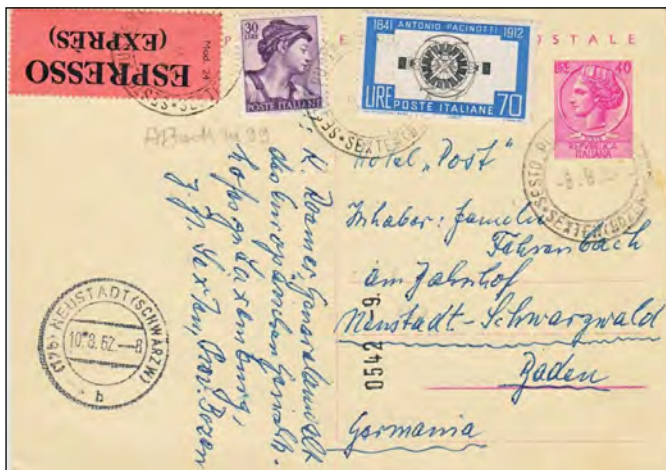 ESPRESSO
(EXPRÈS)
Mod. 24
30
LIRE
POSTE ITALIANE
1841 ANTONIO PACINOTTI 1912
LIRE POSTE ITALIANE 70
POSTALE
LIRE 40
REPUBBLICA
ITALIANA
SESTO
SEXTEN
Hotel „Post"
Inhaber: Familie
Fahrenbach
am Bahnhof
Neustadt-Schwarzwald
Baden
Germania
K. Roemer, Generalanwalt
des Europäischen Gerichts-
hofes in Luxemburg,
z. Zt. Sexten, Prov. Bozen
0542 -9.
NEUSTADT (SCHWARZW)
10.8.62.-8
b